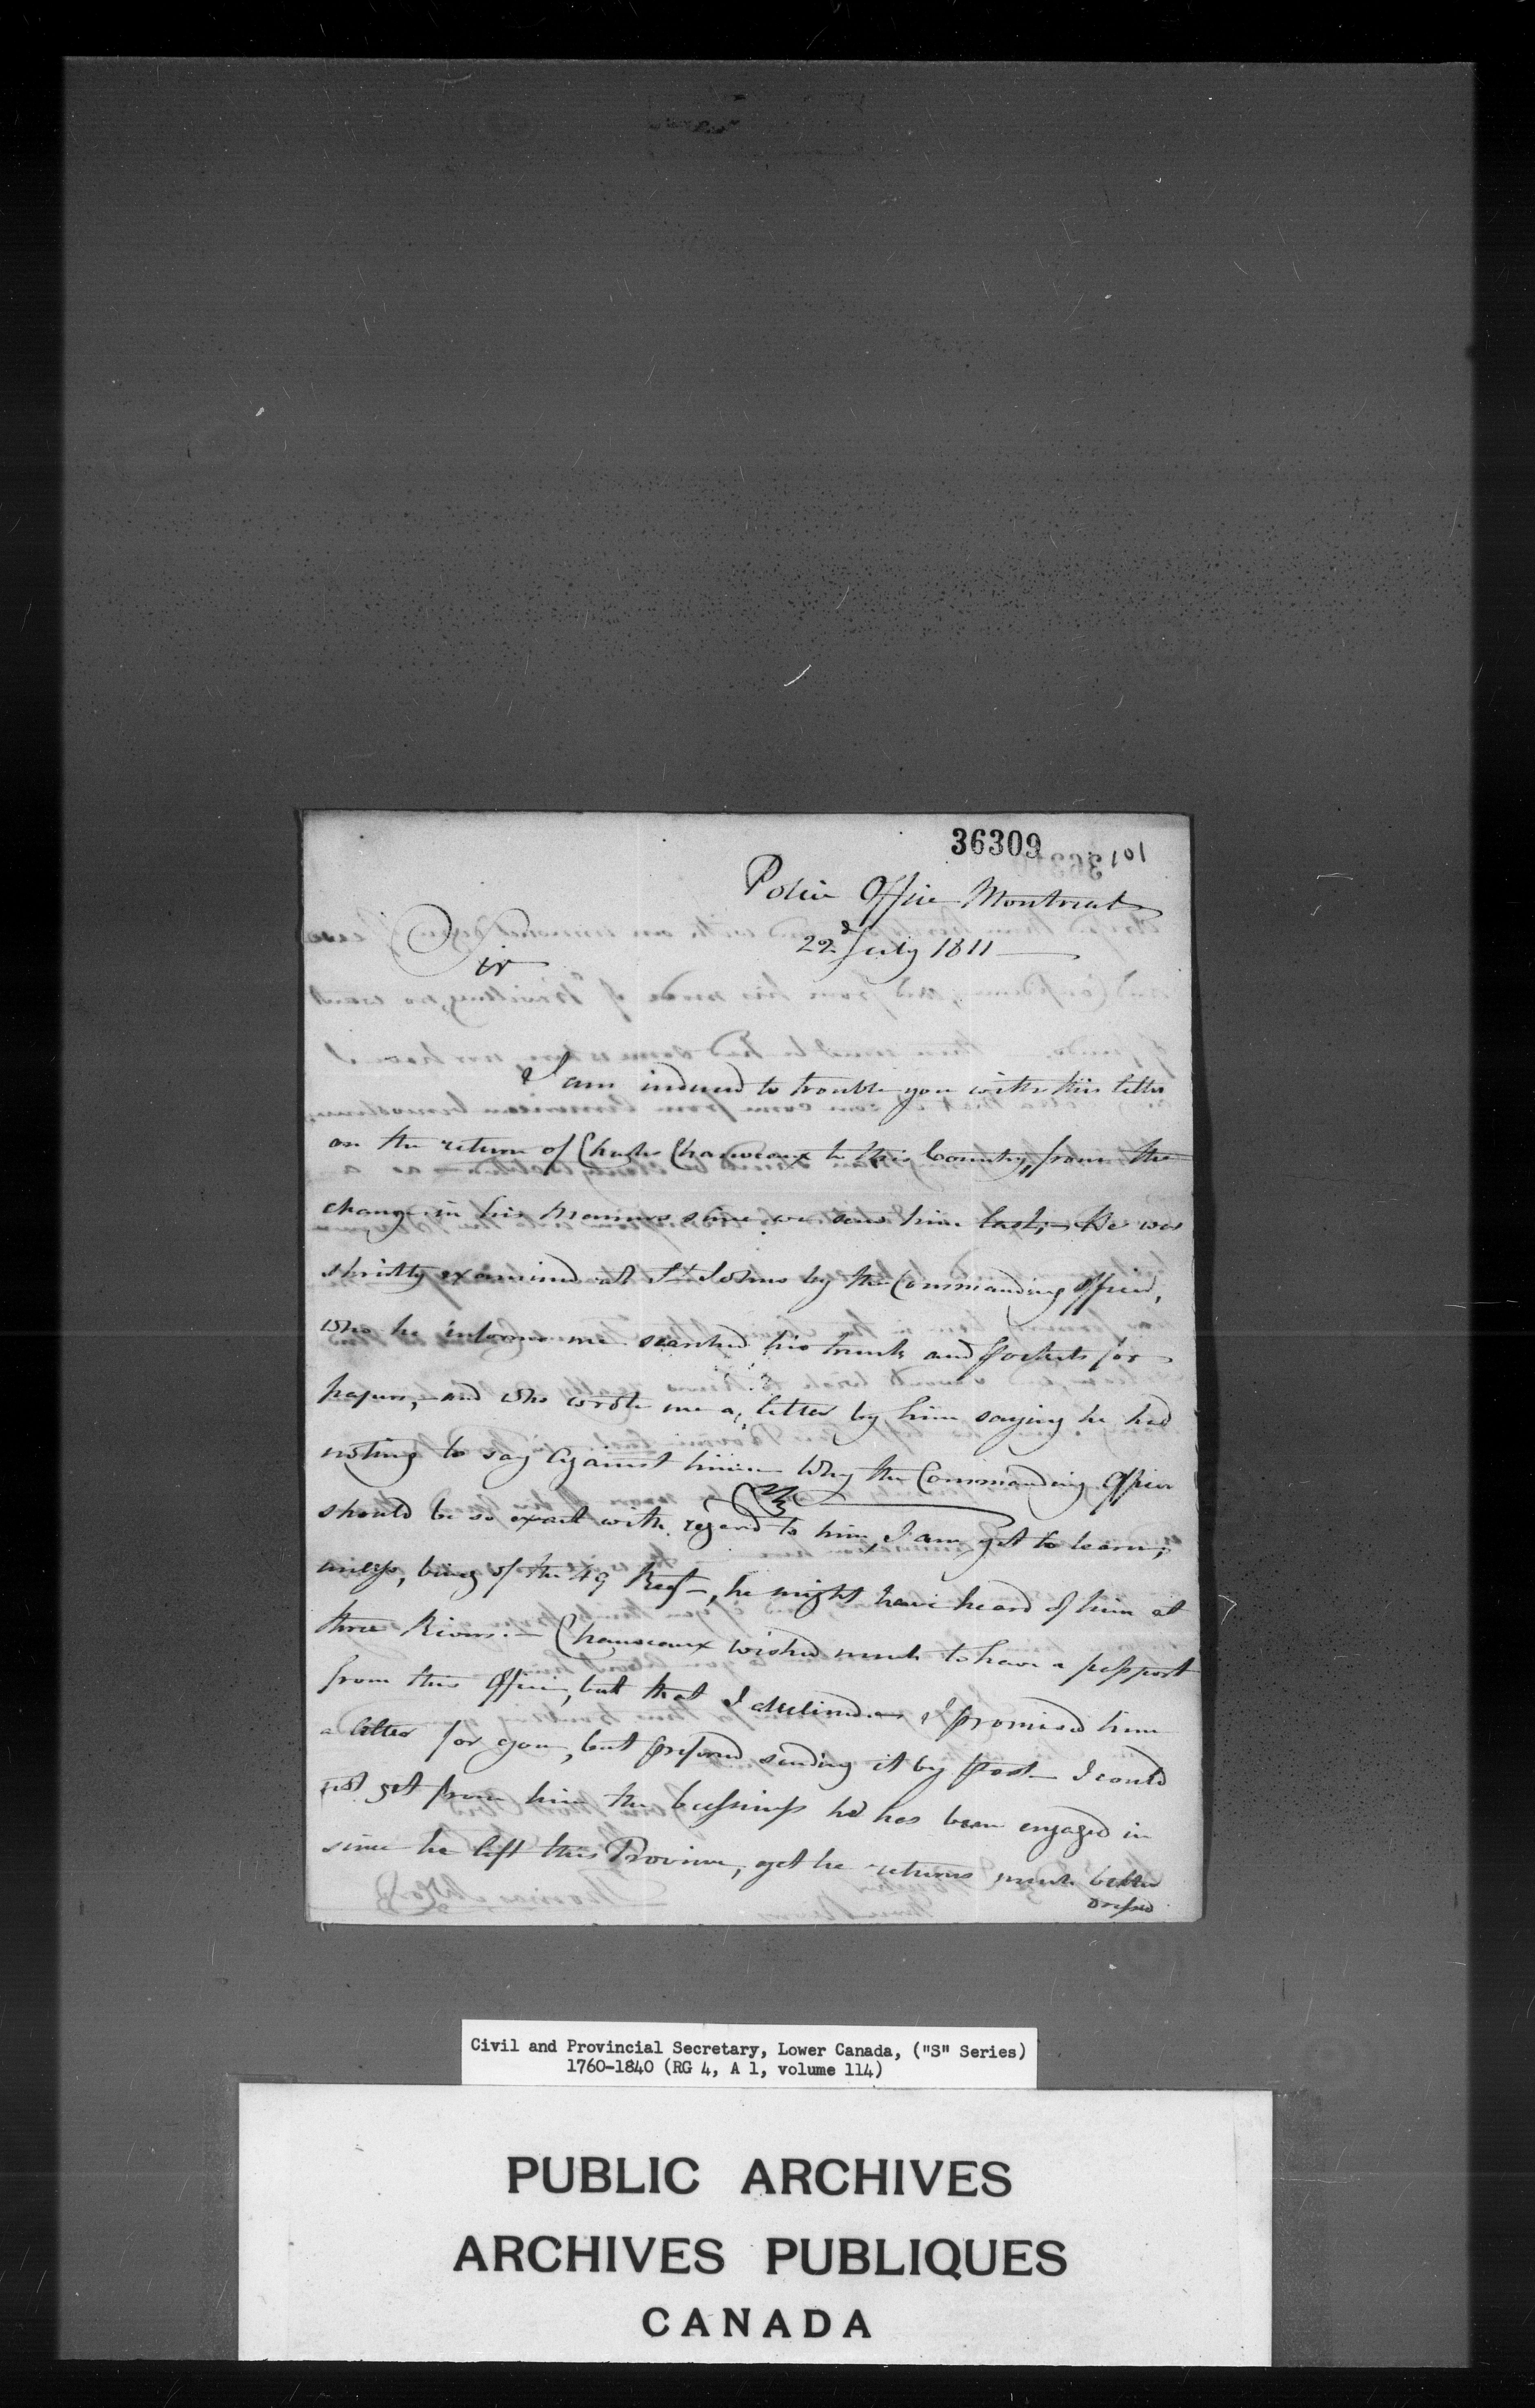 36309
101
Police Office Montreal
22d July 1811
Sir
I am induced to trouble you with this letter
on the return of Charles Chauveaux to this Country, from the
change in his manners since we saw him last, He was
strictly examined at St Johns by the Commanding Officer,
who he informs me searched his trunk and pockets for
papers, and who wrote me a letter by him saying he had
nothing to say against him Why the Commanding Officer
should be so exact with regard to him, I am yet to learn,
unless, being of the 49 Regt, he might have heard of him at
three Rivers. Chauveaux wished much to have a passport
from this Office, but that I declined I promised him
a letter for you, but prefered sending it by post I could
not get from him the bussiness he has been engaged in
since he left this Province, yet he returns much better
dressed
Civil and Provincial Secretary, Lower Canada, ("S" Series)
1760-1840 (RG 4, A 1, volume 114)
PUBLIC ARCHIVES
ARCHIVES PUBLIQUES
CANADA